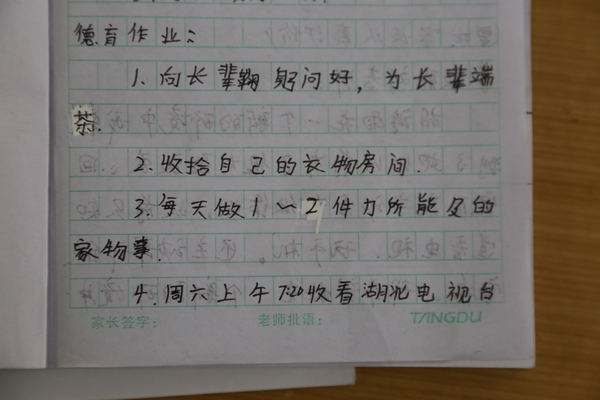 德育作业:
1. 向长辈鞠躬问好,为长辈端
茶.
2. 收拾自己的衣物房间.
3. 每天做1~2件力所能及的
家物事.
4. 周六上午7:20收看湖北电视台
家长签字: 老师批语: TANGDU